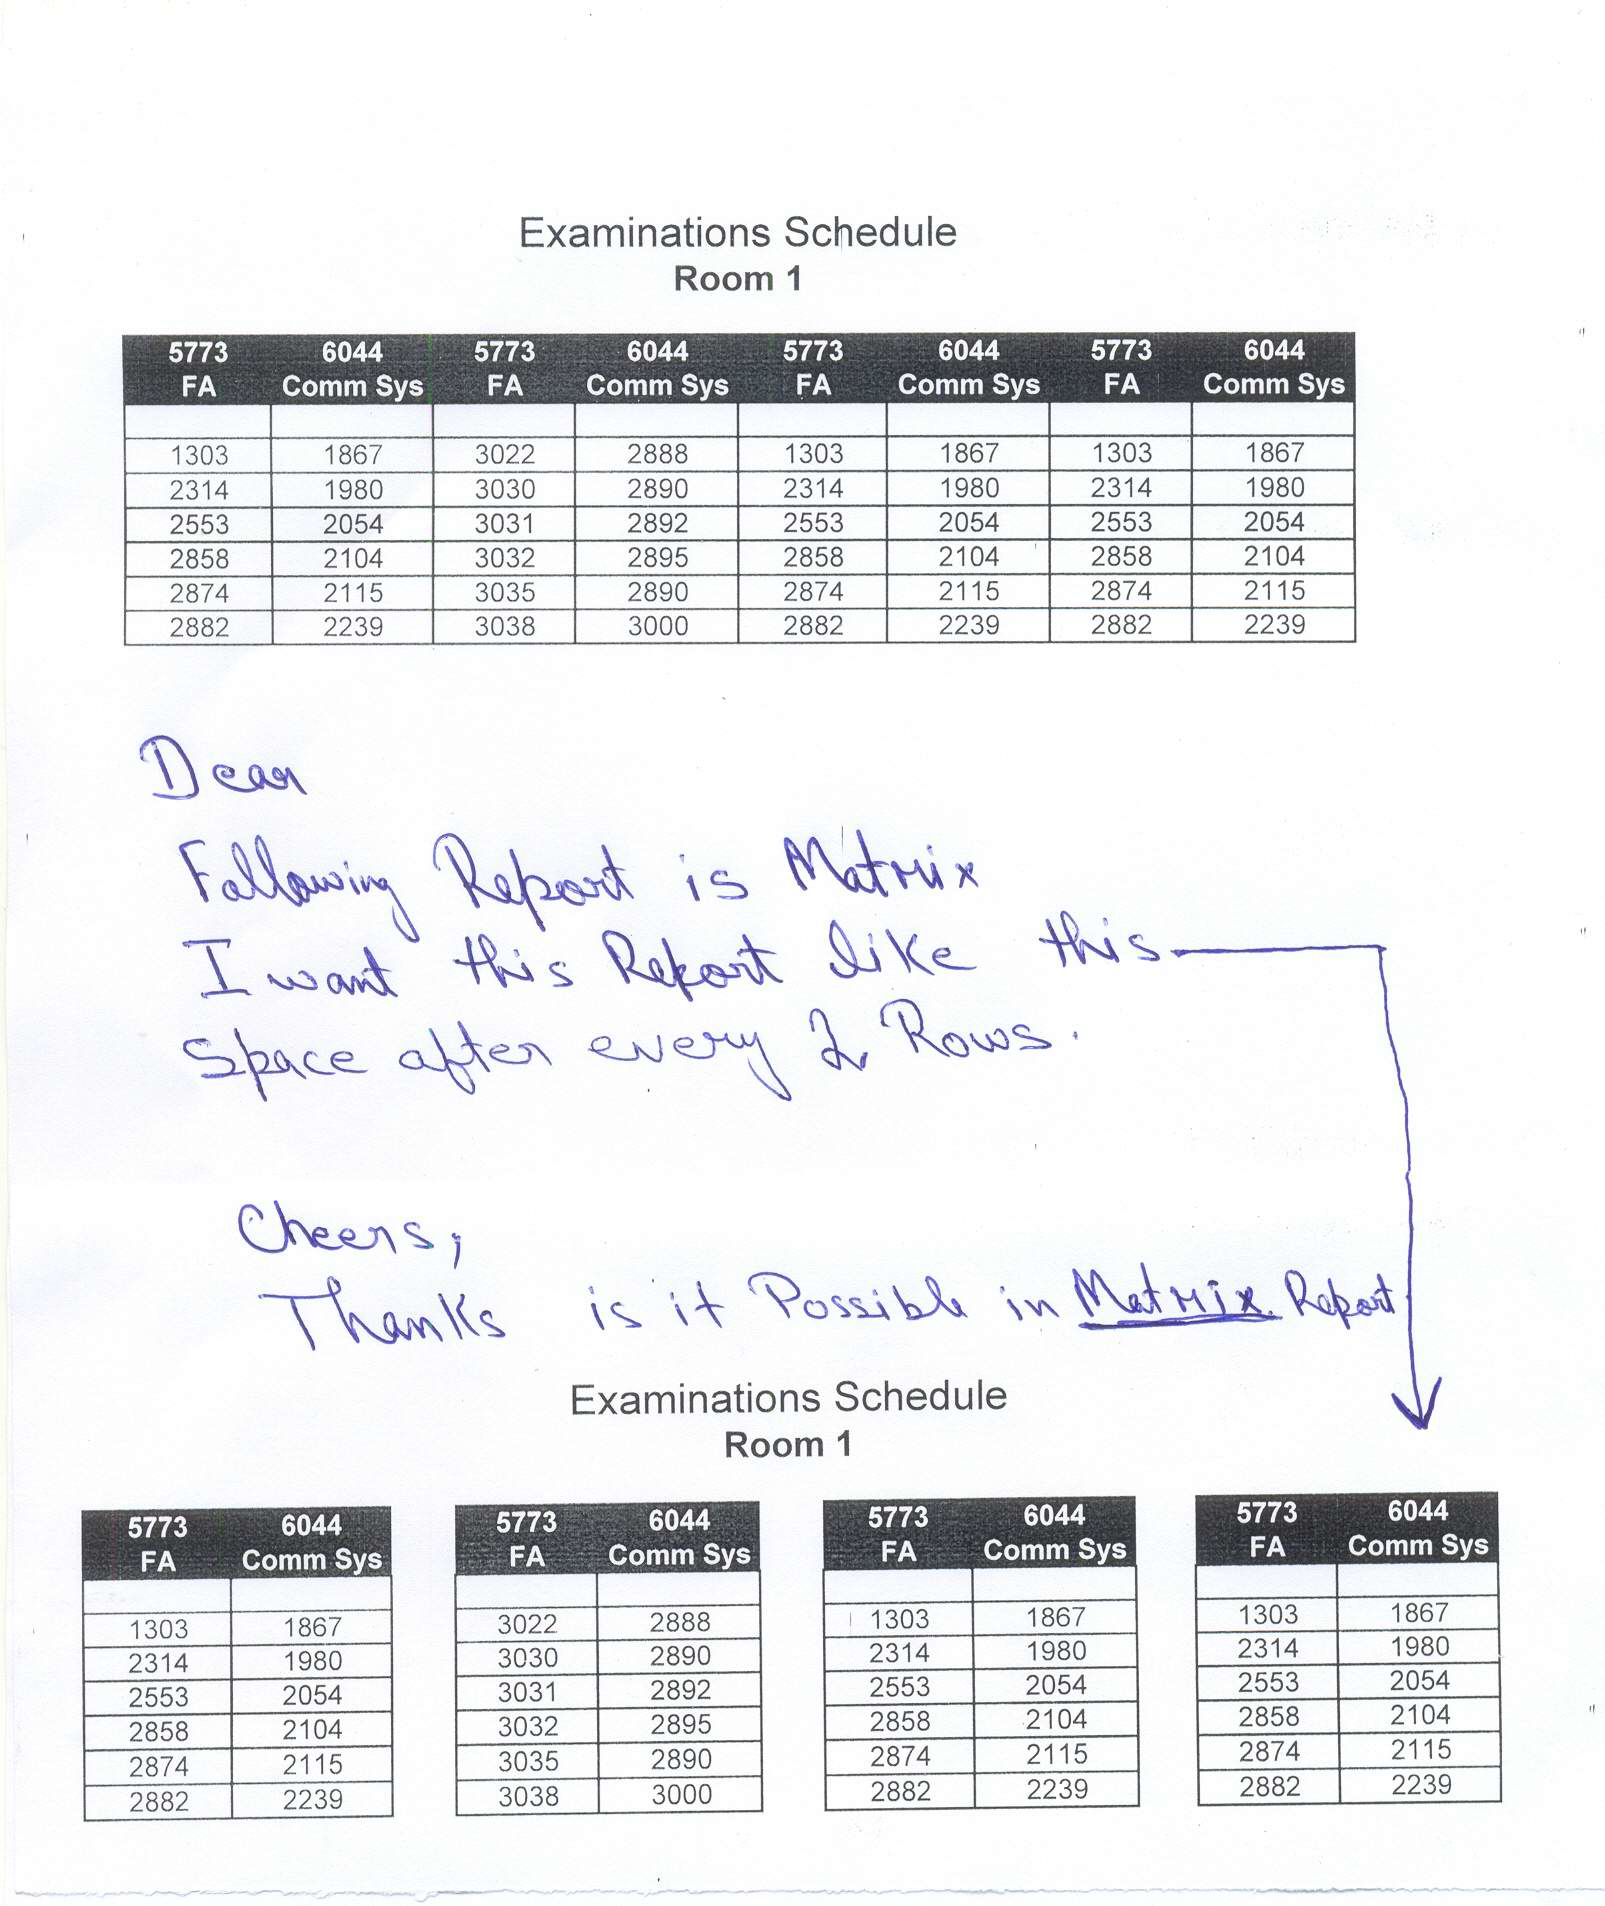 Examinations Schedule
Room 1
5773 6044 5773 6044 5773 6044 5773 6044
FA Comm Sys FA Comm Sys FA Comm Sys FA Comm Sys
1303 1867 3022 2888 1303 1867 1303 1867
2314 1980 3030 2890 2314 1980 2314 1980
2553 2054 3031 2892 2553 2054 2553 2054
2858 2104 3032 2895 2858 2104 2858 2104
2874 2115 3035 2890 2874 2115 2874 2115
2882 2239 3038 3000 2882 2239 2882 2239
Dear
Following Report is Matrix
I want this Report like this
Space after every 2 Rows.
Cheers,
Thanks is it Possible in Matrix Report
Examinations Schedule
Room 1
5773 6044 5773 6044 5773 6044 5773 6044
FA Comm Sys FA Comm Sys FA Comm Sys FA Comm Sys
1303 1867 3022 2888 1303 1867 1303 1867
2314 1980 3030 2890 2314 1980 2314 1980
2553 2054 3031 2892 2553 2054 2553 2054
2858 2104 3032 2895 2858 2104 2858 2104
2874 2115 3035 2890 2874 2115 2874 2115
2882 2239 3038 3000 2882 2239 2882 2239